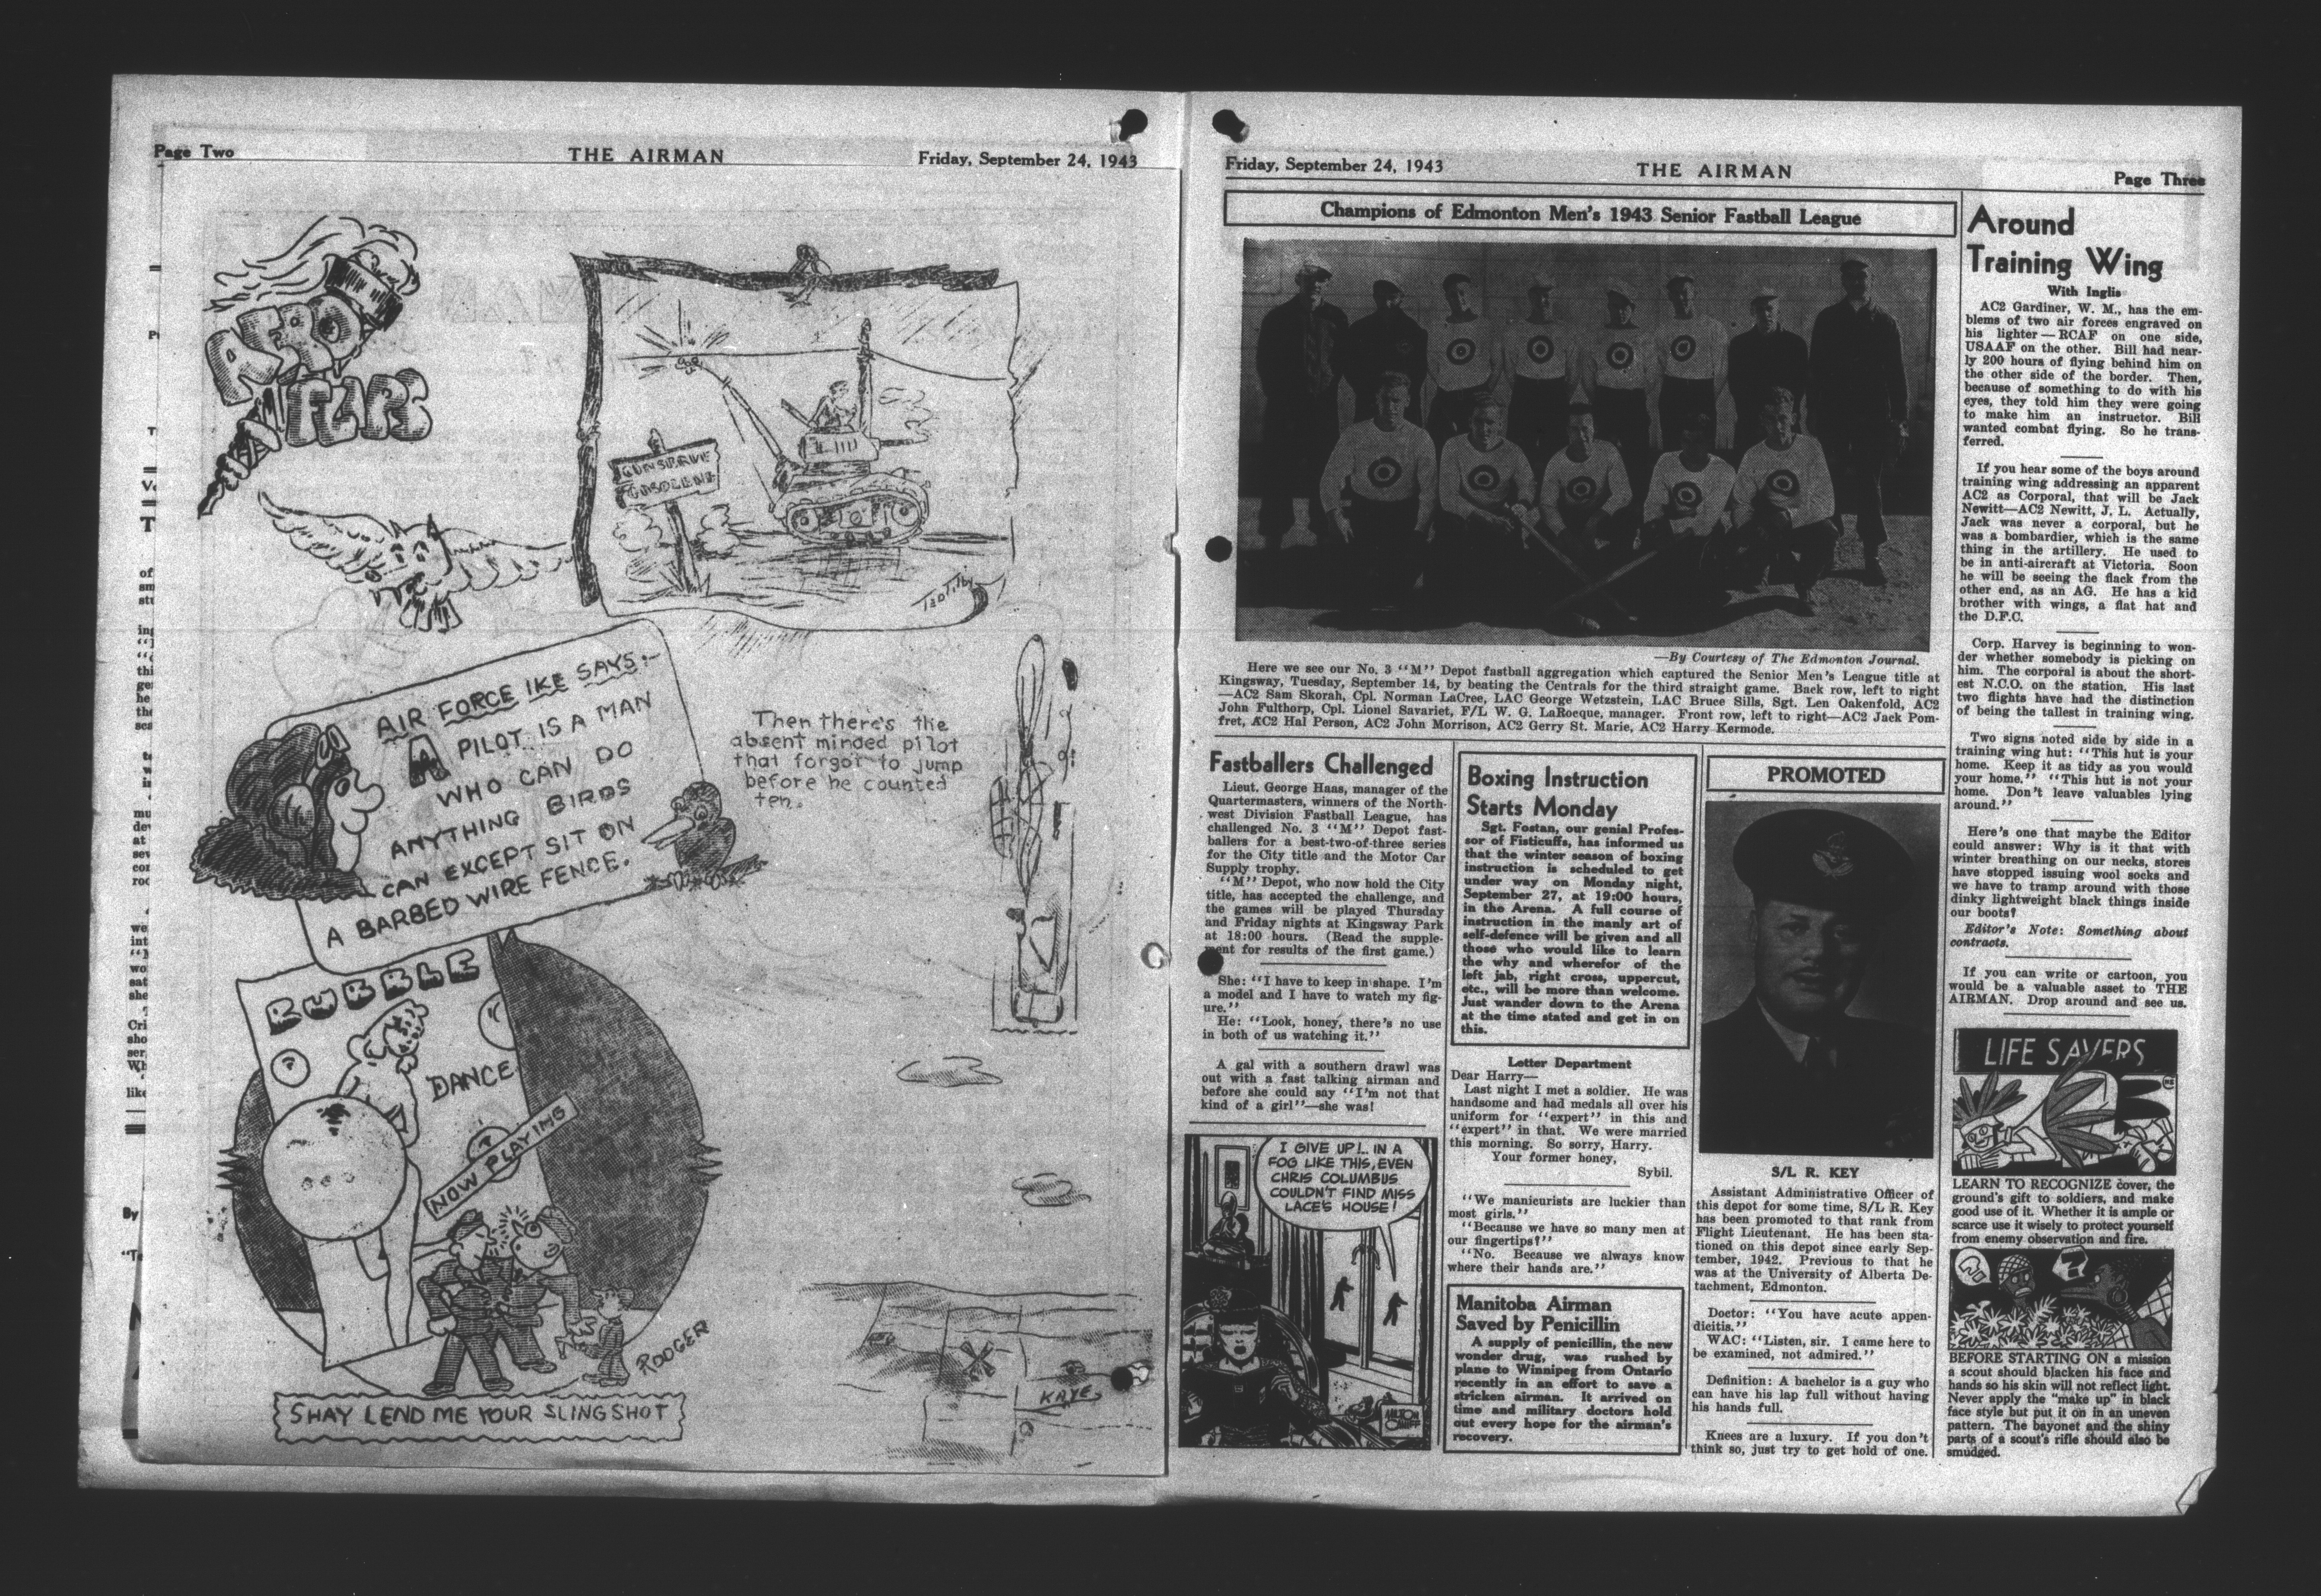 Page Two
THE AIRMAN
Friday, September 24, 1943
AERO
FLIPS
CONSERVE
GASOLENE
AIR FORCE IKE SAYS:-
A PILOT IS A MAN
WHO CAN DO
ANYTHING BIRDS
CAN EXCEPT SIT ON
A BARBED WIRE FENCE.
Then there's the
absent minded pilot
that forgot to jump
before he counted
ten.
BUBBLE
DANCE
NOW PLAYING
RODGER
SHAY LEND ME YOUR SLINGSHOT
KAYE
Friday, September 24, 1943
THE AIRMAN
Page Three
Champions of Edmonton Men's 1943 Senior Fastball League
—By Courtesy of The Edmonton Journal.
Here we see our No. 3 "M" Depot fastball aggregation which captured the Senior Men's League title at
Kingsway, Tuesday, September 14, by beating the Centrals for the third straight game. Back row, left to right
—AC2 Sam Skorah, Cpl. Norman LaCree, LAC George Wetzstein, LAC Bruce Sills, Sgt. Len Oakenfold, AC2
John Fulthorp, Cpl. Lionel Savariet, F/L W. G. LaRocque, manager. Front row, left to right—AC2 Jack Pom-
fret, AC2 Hal Person, AC2 John Morrison, AC2 Gerry St. Marie, AC2 Harry Kermode.
Fastballers Challenged
Lieut. George Haas, manager of the
Quartermasters, winners of the North-
west Division Fastball League, has
challenged No. 3 "M" Depot fast-
ballers for a best-two-of-three series
for the City title and the Motor Car
Supply trophy.
"M" Depot, who now hold the City
title, has accepted the challenge, and
the games will be played Thursday
and Friday nights at Kingsway Park
at 18:00 hours. (Read the supple-
ment for results of the first game.)
She: "I have to keep in shape. I'm
a model and I have to watch my fig-
ure."
He: "Look, honey, there's no use
in both of us watching it."
A gal with a southern drawl was
out with a fast talking airman and
before she could say "I'm not that
kind of a girl"—she was!
I GIVE UP!.. IN A
FOG LIKE THIS, EVEN
CHRIS COLUMBUS
COULDN'T FIND MISS
LACE'S HOUSE!
MILTON
CANIFF
Boxing Instruction
Starts Monday
Sgt. Fostan, our genial Profes-
sor of Fisticuffs, has informed us
that the winter season of boxing
instruction is scheduled to get
under way on Monday night,
September 27, at 19:00 hours,
in the Arena. A full course of
instruction in the manly art of
self-defence will be given and all
those who would like to learn
the why and wherefor of the
left jab, right cross, uppercut,
etc., will be more than welcome.
Just wander down to the Arena
at the time stated and get in on
this.
Letter Department
Dear Harry—
Last night I met a soldier. He was
handsome and had medals all over his
uniform for "expert" in this and
"expert" in that. We were married
this morning. So sorry, Harry.
Your former honey,
Sybil.
"We manicurists are luckier than
most girls."
"Because we have so many men at
our fingertips?"
"No. Because we always know
where their hands are."
Manitoba Airman
Saved by Penicillin
A supply of penicillin, the new
wonder drug, was rushed by
plane to Winnipeg from Ontario
recently in an effort to save a
stricken airman. It arrived on
time and military doctors hold
out every hope for the airman's
recovery.
PROMOTED
S/L R. KEY
Assistant Administrative Officer of
this depot for some time, S/L R. Key
has been promoted to that rank from
Flight Lieutenant. He has been sta-
tioned on this depot since early Sep-
tember, 1942. Previous to that he
was at the University of Alberta De-
tachment, Edmonton.
Doctor: "You have acute appen-
dicitis."
WAC: "Listen, sir. I came here to
be examined, not admired."
Definition: A bachelor is a guy who
can have his lap full without having
his hands full.
Knees are a luxury. If you don't
think so, just try to get hold of one.
Around
Training Wing
With Inglis
AC2 Gardiner, W. M., has the em-
blems of two air forces engraved on
his lighter — RCAF on one side,
USAAF on the other. Bill had near-
ly 200 hours of flying behind him on
the other side of the border. Then,
because of something to do with his
eyes, they told him they were going
to make him an instructor. Bill
wanted combat flying. So he trans-
ferred.
If you hear some of the boys around
training wing addressing an apparent
AC2 as Corporal, that will be Jack
Newitt—AC2 Newitt, J. L. Actually,
Jack was never a corporal, but he
was a bombardier, which is the same
thing in the artillery. He used to
be in anti-aircraft at Victoria. Soon
he will be seeing the flack from the
other end, as an AG. He has a kid
brother with wings, a flat hat and
the D.F.C.
Corp. Harvey is beginning to won-
der whether somebody is picking on
him. The corporal is about the short-
est N.C.O. on the station. His last
two flights have had the distinction
of being the tallest in training wing.
Two signs noted side by side in a
training wing hut: "This hut is your
home. Keep it as tidy as you would
your home." "This hut is not your
home. Don't leave valuables lying
around."
Here's one that maybe the Editor
could answer: Why is it that with
winter breathing on our necks, stores
have stopped issuing wool socks and
we have to tramp around with those
dinky lightweight black things inside
our boots?
Editor's Note: Something about
contracts.
If you can write or cartoon, you
would be a valuable asset to THE
AIRMAN. Drop around and see us.
LIFE SAVERS
LEARN TO RECOGNIZE cover, the
ground's gift to soldiers, and make
good use of it. Whether it is ample or
scarce use it wisely to protect yourself
from enemy observation and fire.
BEFORE STARTING ON a mission
a scout should blacken his face and
hands so his skin will not reflect light.
Never apply the "make up" in black
face style but put it on in an uneven
pattern. The bayonet and the shiny
parts of a scout's rifle should also be
smudged.